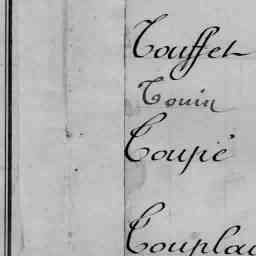 Touffet
Touin
Toupie
Touplai